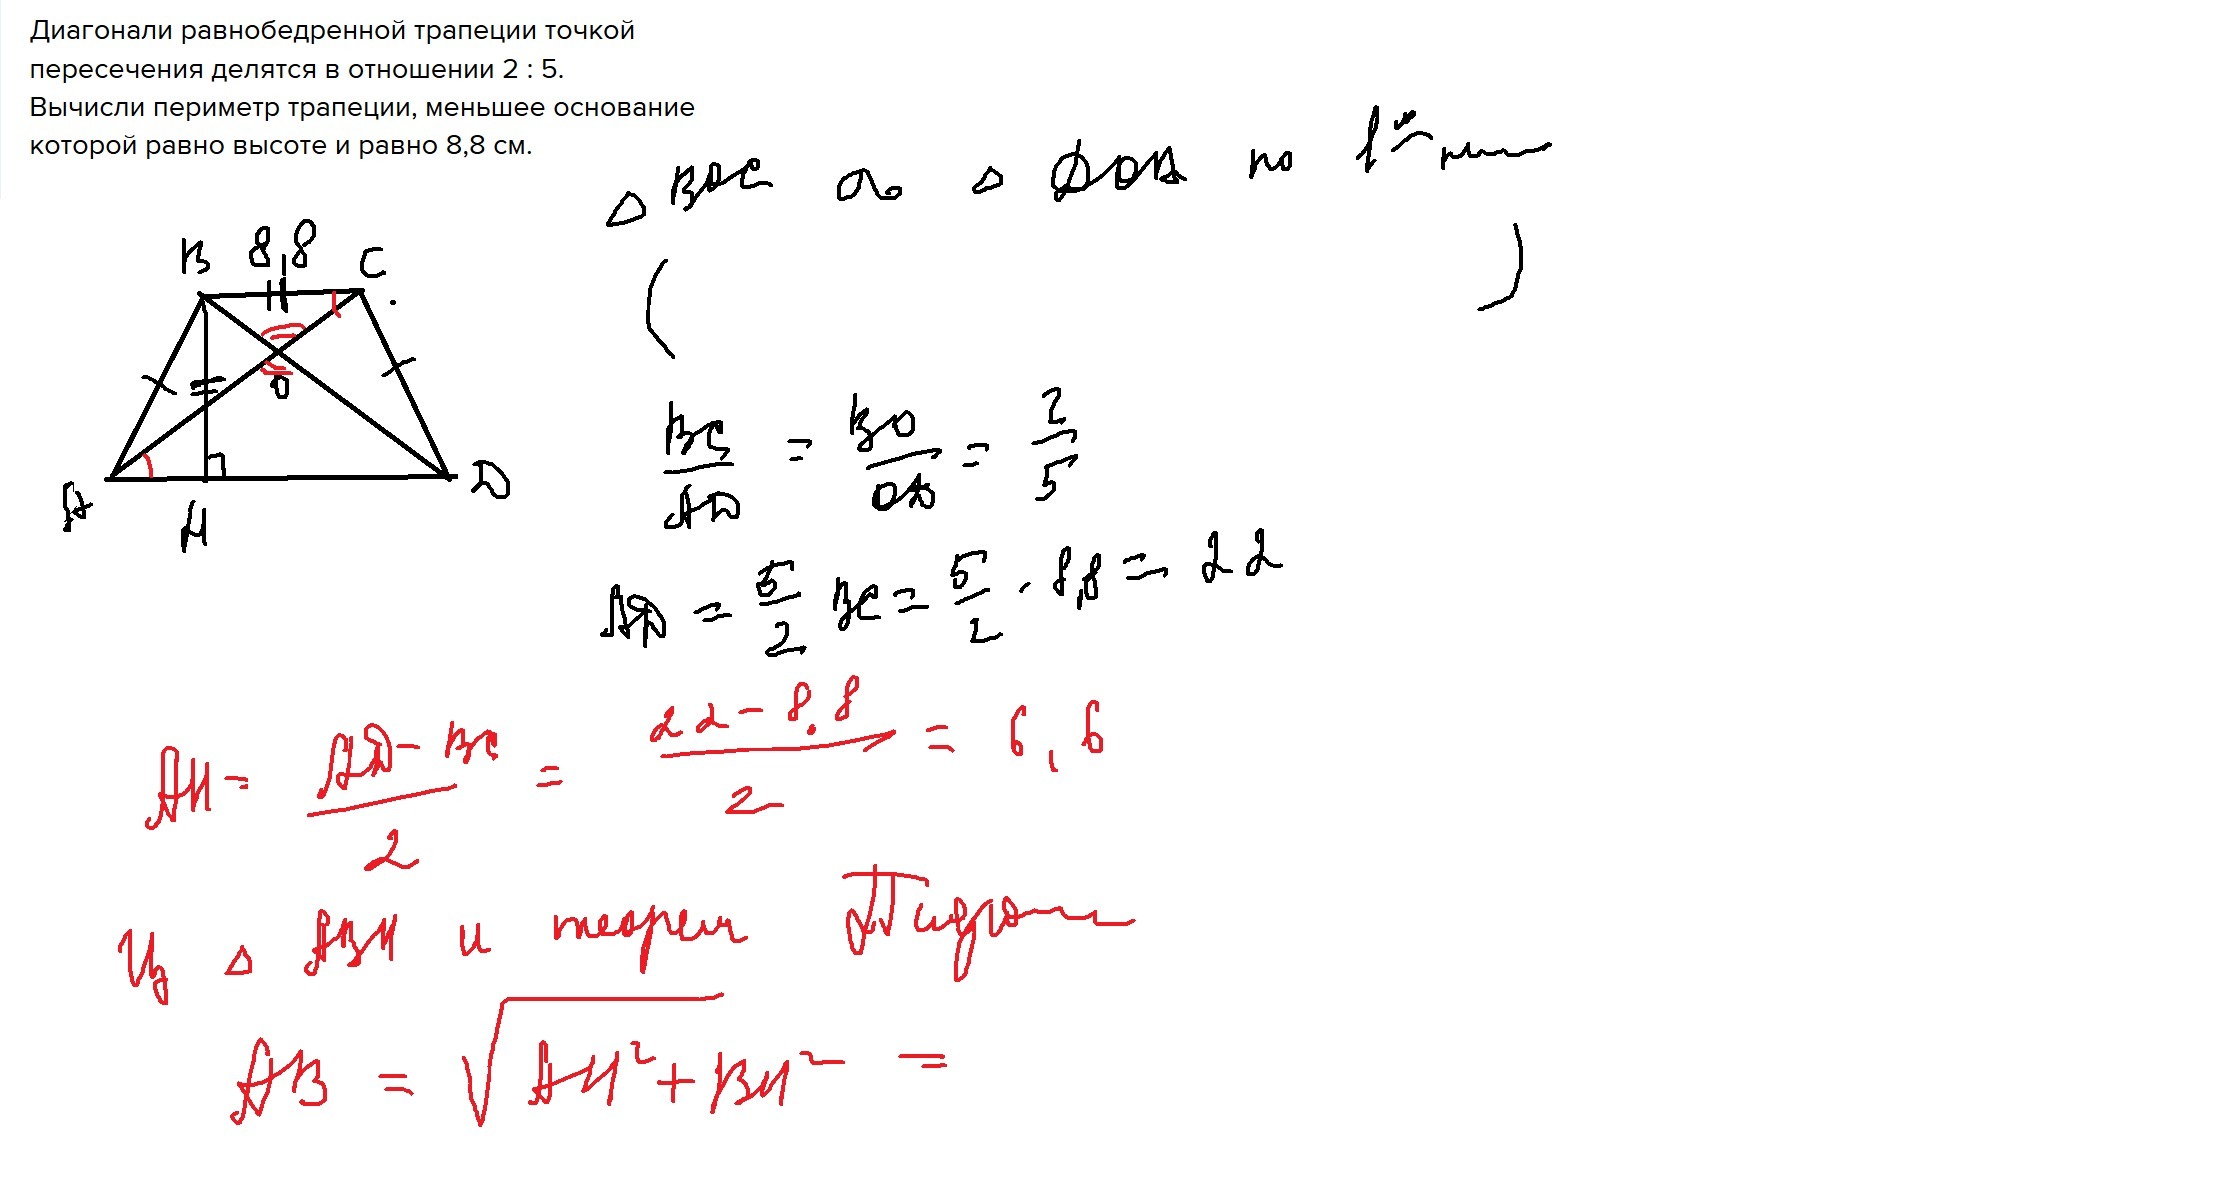 Диагонали равнобедренной трапеции точкой
пересечения делятся в отношении 2 : 5.
Вычисли периметр трапеции, меньшее основание
которой равно высоте и равно 8,8 см.
△ BOC ∾ △ DOA по
( )
B 8,8 C
O
A H D
BC/AD = BO/OD = 2/5
AD = 5/2 BC = 5/2 · 8,8 = 22
AH = (AD - BC)/2 = (22 - 8,8)/2 = 6,6
△ ABH и
AB = √(AH² + BH²) =